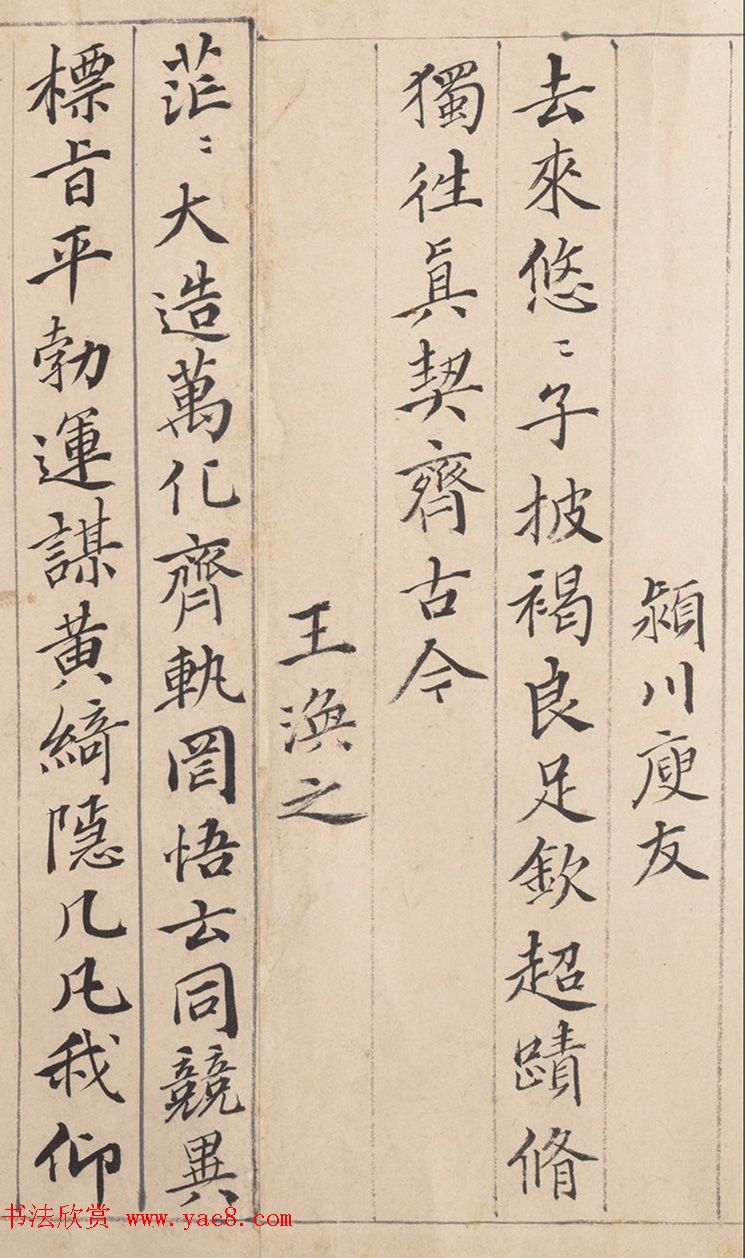 潁川庾友
去來悠〻子披褐良足欽超蹟脩
獨往眞契齊古今
王渙之
茫〻大造萬化齊軌罔悟玄同競異
標旨平勃運謀黃綺隱几凡我仰
书法欣赏 www.yac8.com